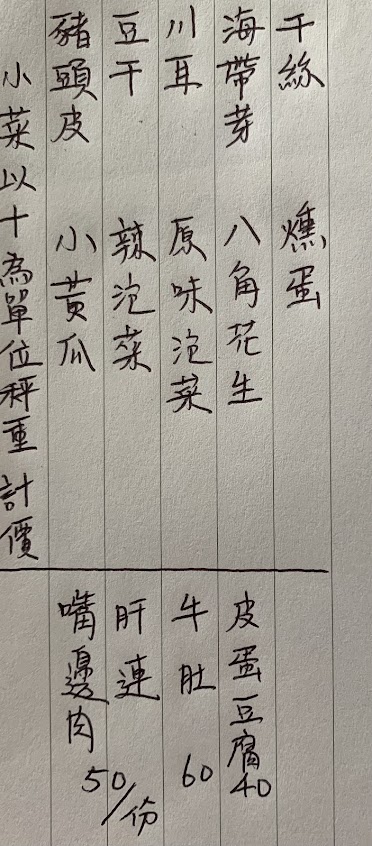 干絲 燻蛋
海帶芽 八角花生
川耳 原味泡菜
豆干 辣泡菜
豬頭皮 小黃瓜
小菜以十為單位秤重 計價
皮蛋豆腐40
牛肚 60
肝連
嘴邊肉
50/份